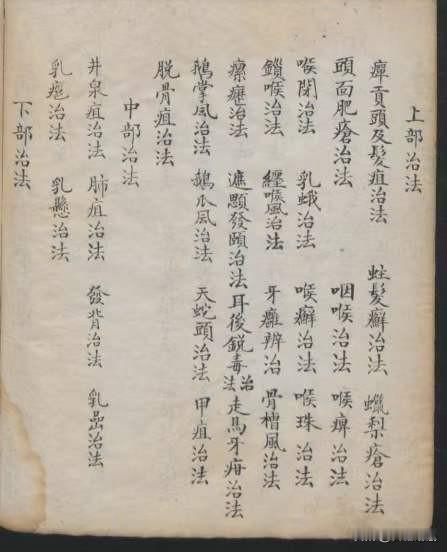 上部治法
痺貢頭及髮疽治法 蛀髮癬治法 蠟梨瘡治法
頭面肥瘡治法 咽喉治法 喉痺治法
喉閉治法 乳蛾治法 喉癬治法 喉珠治法
鎖喉治法 纏喉風治法 牙癰辨治 骨槽風治法
瘰癧治法 遮顋發頤治法 耳後銳毒治法 走馬牙疳治法
鵝掌風治法 鵝爪風治法 天蛇頭治法 甲疽治法
脫骨疽治法
中部治法
井泉疽治法 肺疽治法 發背治法 乳岩治法
乳癰治法 乳懸治法
下部治法